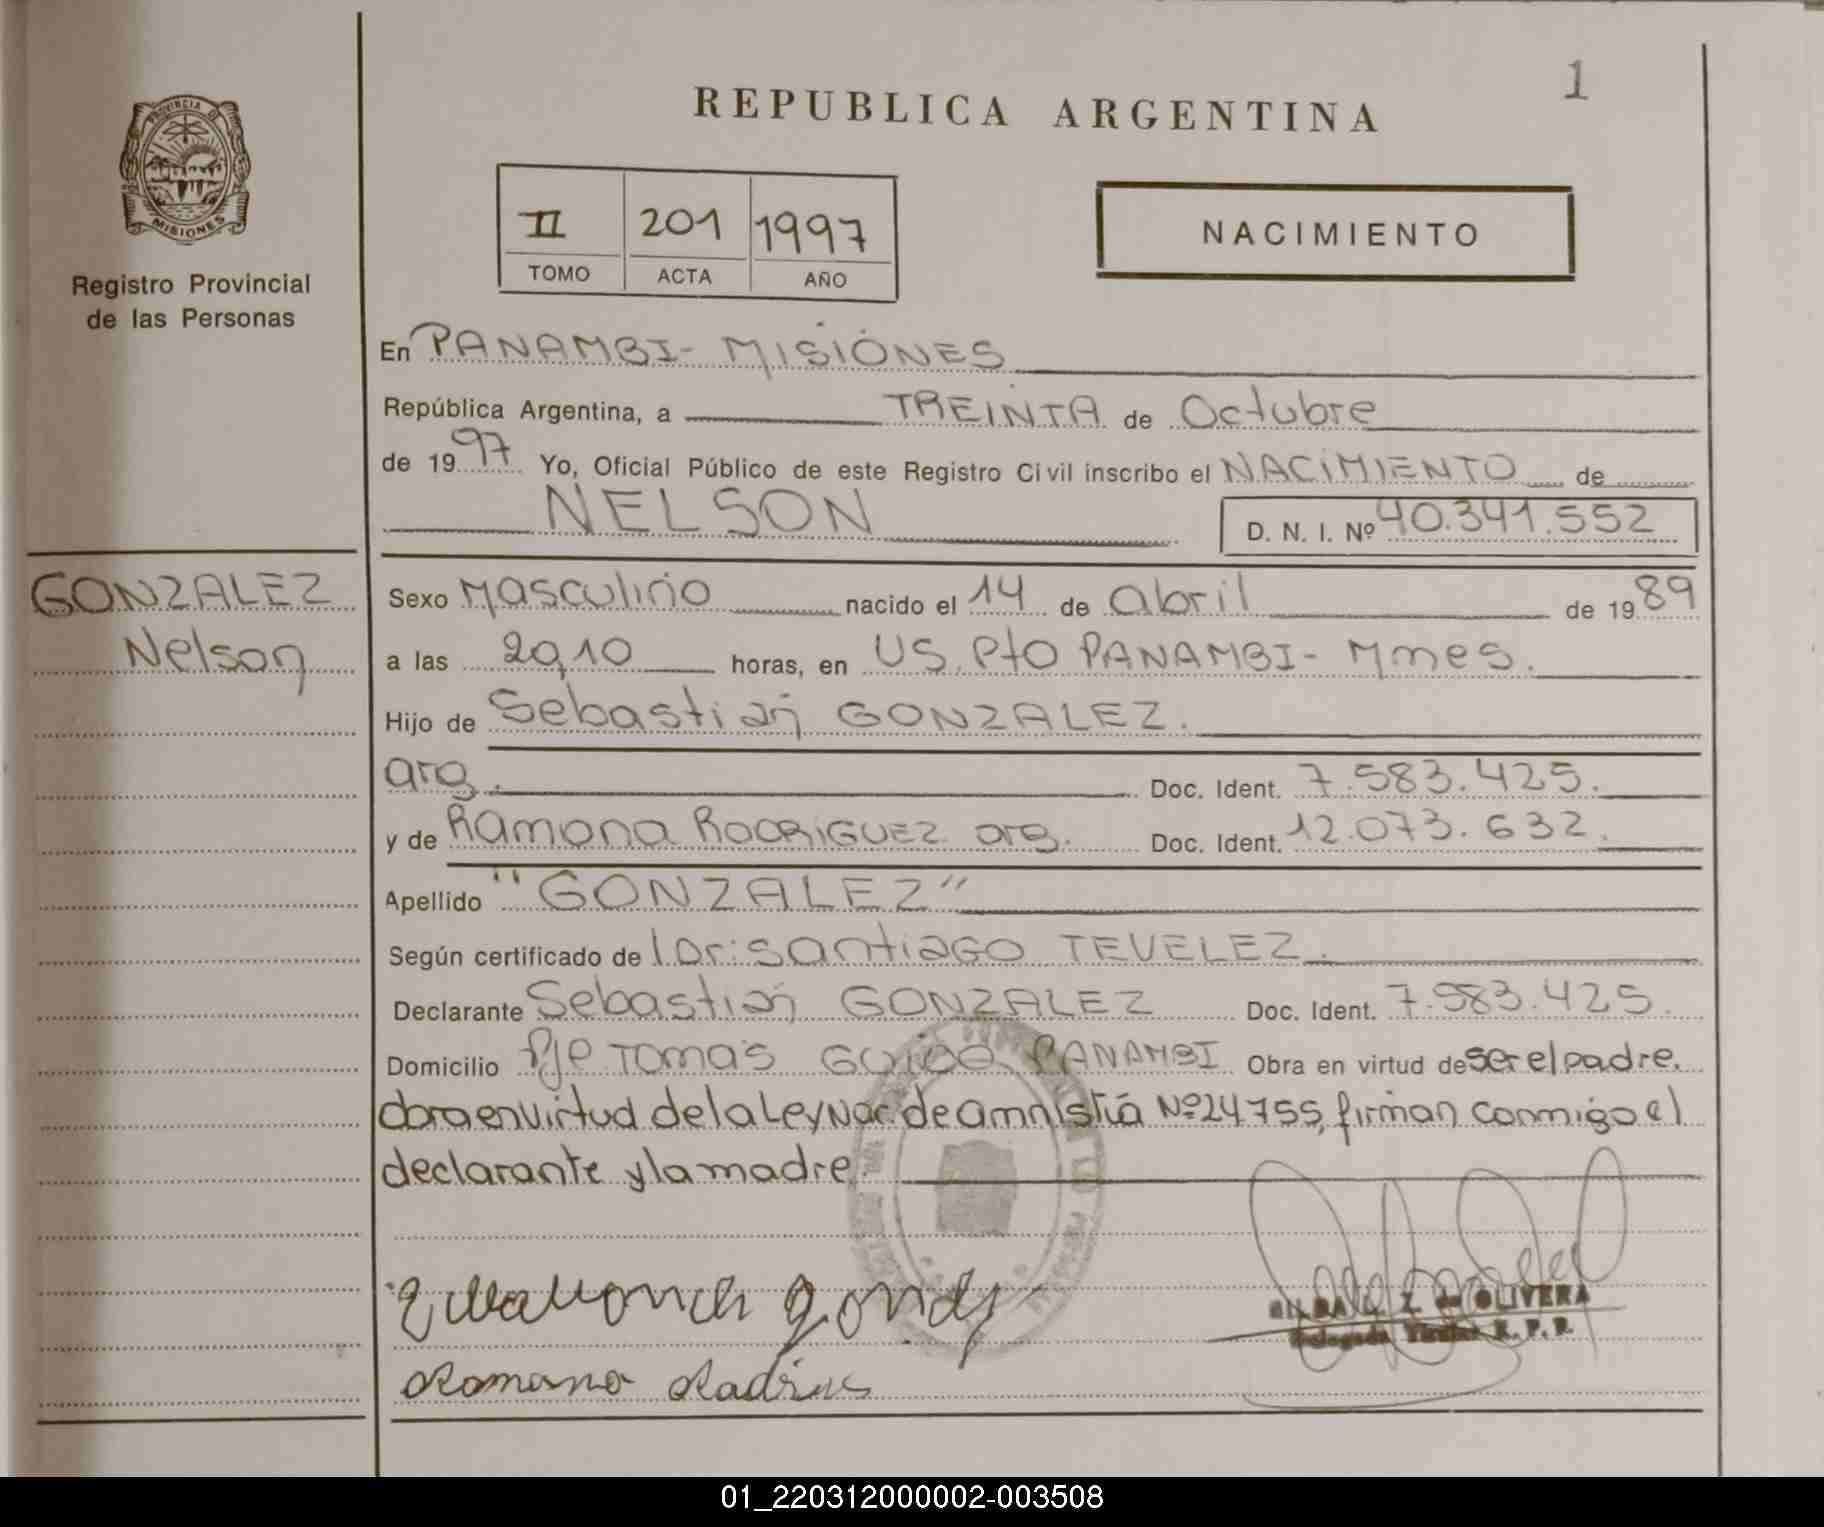 1
REPUBLICA ARGENTINA
PROVINCIA DE
MISIONES
Registro Provincial
de las Personas
II 201 1997
TOMO ACTA AÑO
NACIMIENTO
En PANAMBI - MISIONES
República Argentina, a TREINTA de Octubre
de 1997 Yo, Oficial Público de este Registro Civil inscribo el NACIMIENTO de
NELSON D. N. I. Nº 40.341.552
GONZALEZ
Nelson
Sexo Masculino nacido el 14 de abril de 1989
a las 20,10 horas, en US. Pto PANAMBI - Mnes.
Hijo de Sebastian GONZALEZ.
arg. Doc. Ident. 7.583.425.
y de Ramona RODRIGUEZ arg. Doc. Ident. 12.073.632.
Apellido "GONZALEZ"
Según certificado de Dr. Santiago TEVELEZ.
Declarante Sebastian GONZALEZ Doc. Ident. 7.583.425.
Domicilio Pje Tomas GUIDO PANAMBI Obra en virtud de ser el padre.
obra en virtud de la Ley Nac. de amnistía Nº 24755, firman conmigo el
declarante y la madre.
Z. de OLIVERA
R. P. P.
01_220312000002-003508